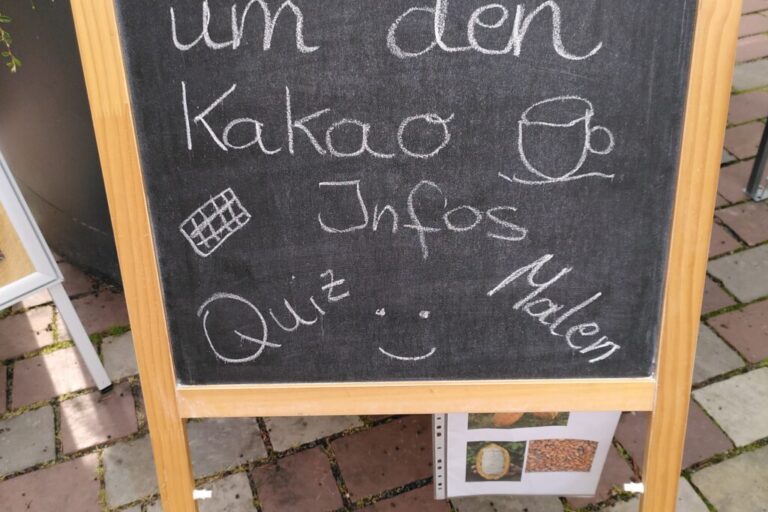 um den
Kakao
Infos
Quiz
Malen